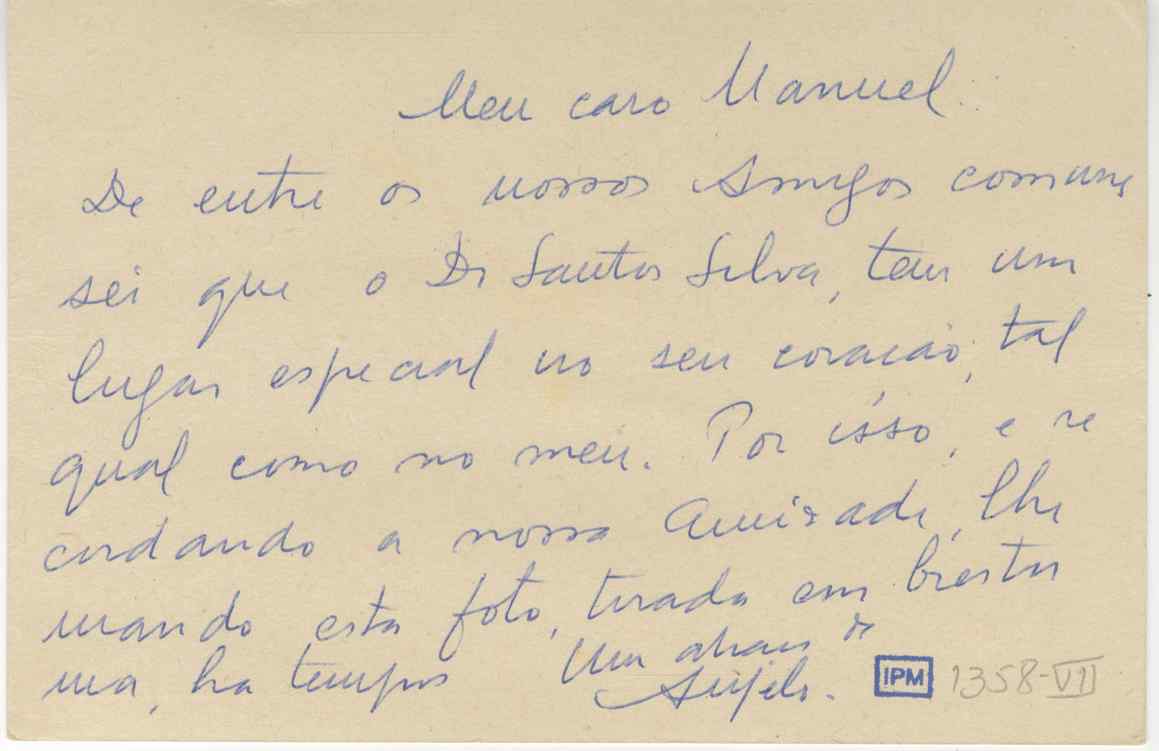 Meu caro Manuel.
De entre os nossos Amigos comuns
sei que o Dr Santos Silva, tem um
lugar especial no seu coracão, tal
qual como no meu. Por isso, e re
cordando a nossa Amizade, lhe
mando esta foto, tirada em
ma, ha tempos Um abraço do
IPM 1358-VII